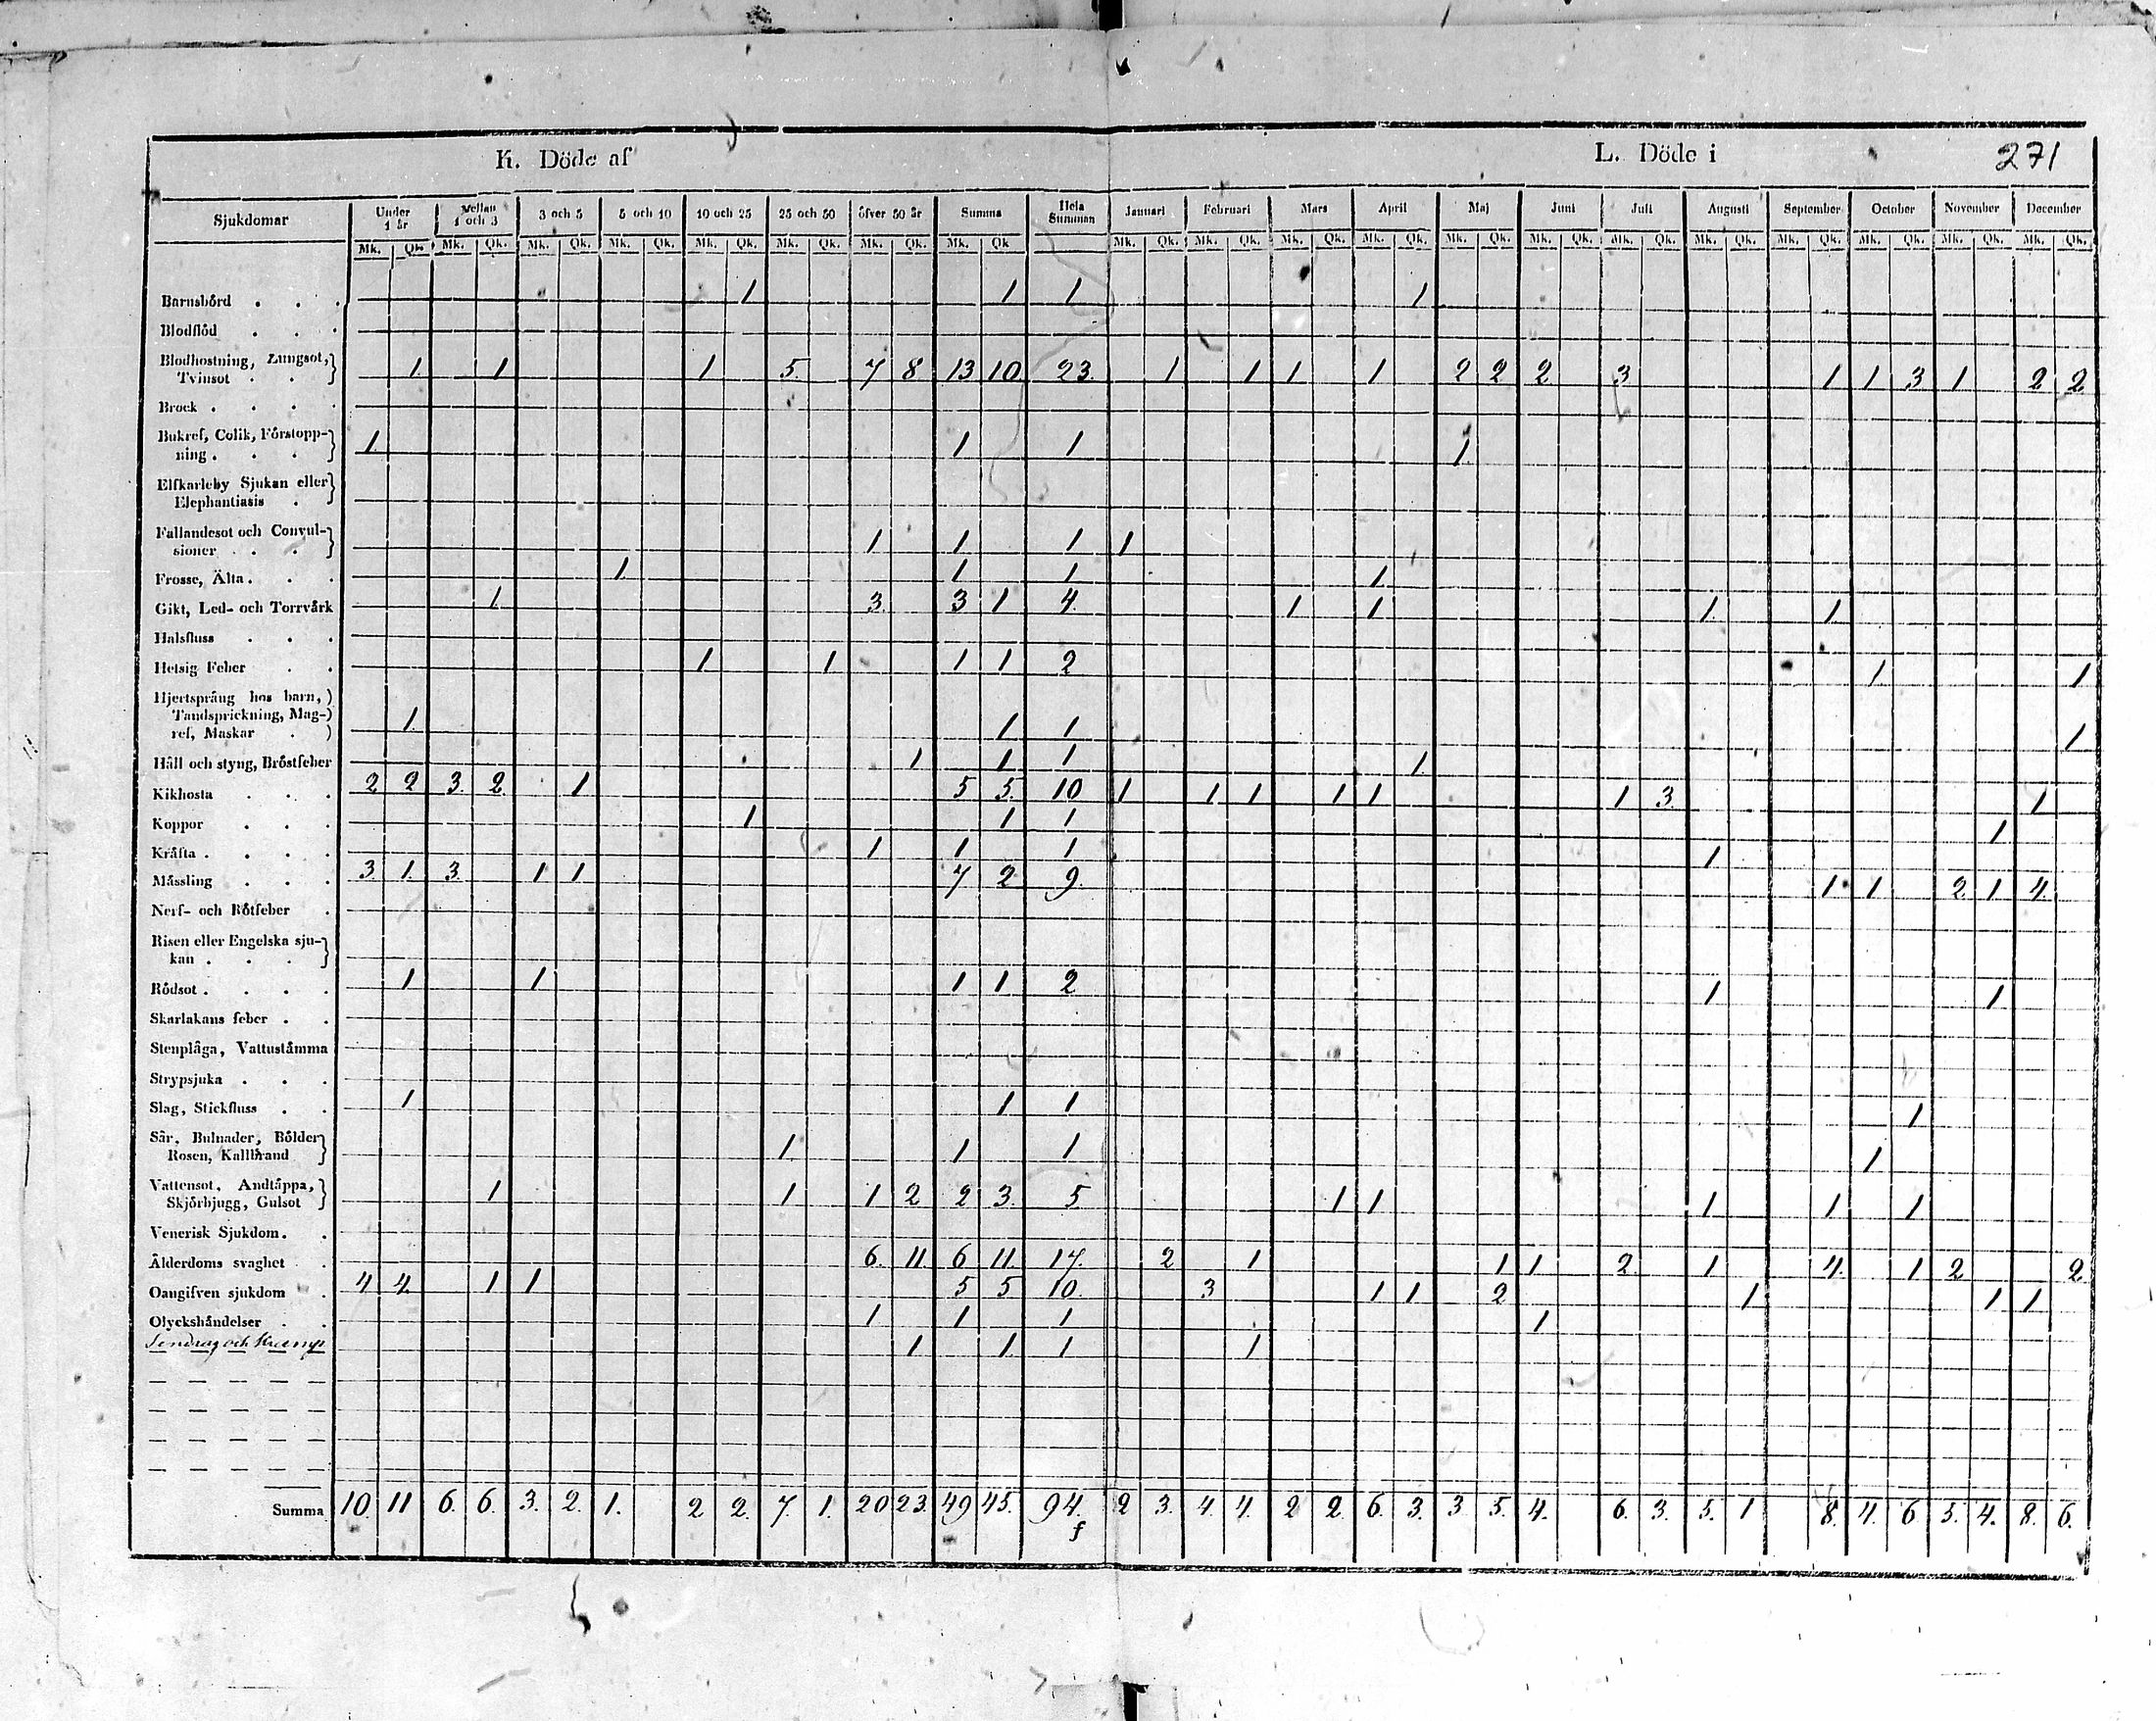 K. Döde af
L. Döde i
271
Sjukdomar Under 1 år Mellan 1 och 3 3 och 5 5 och 10 10 och 25 25 och 50 öfver 50 år Summa Hela Summan Januari Februari Mars April Maj Juni Juli Augusti September October November December
Mk. Qk. Mk. Qk. Mk. Qk. Mk. Qk. Mk. Qk. Mk. Qk. Mk. Qk. Mk. Qk Mk. Qk. Mk. Qk. Mk. Qk. Mk. Qk. Mk. Qk. Mk. Qk. Mk. Qk. Mk. Qk. Mk. Qk. Mk. Qk. Mk. Qk. Mk. Qk.
Barnsbörd . . . 1 1 1 1
Blodflöd . . .
Blodhostning, Lungsot,
Tvinsot . . 1 1 1 5. 7 8 13 10 23. 1 1 1 1 2 2 2 3 1 1 3 1 2 2
Brock . . . .
Bukref, Colik, Förstopp-
ning . . . 1. 1 1 1.
Elfkarleby Sjukan eller
Elephantiasis .
Fallandesot och Convul-
sioner . . 1 1 1 1
Frosse, Älta . . . 1 1 1 1
Gikt, Led- och Torrvärk 1. 3. 3 1 4. 1 1 1. 1.
Halsfluss . . .
Hetsig Feber . . 1 1 1 1 2 1 1
Hjertsprång hos barn,
Tandsprickning, Mag-
ref, Maskar . 1. 1 1 1
Håll och styng, Bröstfeber 1 1 1 1
Kikhosta . . . 2 2 3. 2. 1 5 5. 10 1 1 1 1 1 1 3. 1
Koppor . . . 1 1 1 1
Kräfta . . . . 1 1 1 1
Mässling . . . 3 1. 3. 1 1 7 2 9. 1 1 2 1 4.
Nerf- och Rötfeber .
Risen eller Engelska sju-
kan . . .
Rödsot . . . . 1 1 1 1 2 1 1
Skarlakans feber . .
Stenplåga, Vattustämma
Strypsjuka . . .
Slag, Stickfluss . . 1 1 1 1
Sår, Bulnader, Bölder
Rosen, Kallbrand 1. 1 1 1
Vattensot, Andtäppa,
Skjörbjugg, Gulsot 1 1 1 2 2 3. 5 1 1 1 1 1
Venerisk Sjukdom . .
Ålderdoms svaghet . 6. 11. 6 11 17. 2 1 1 1 2. 1 4. 1 2 2
Oangifven sjukdom . 4 4. 1 1 5 5 10. 3 1 1 2 1 1 1
Olyckshändelser . . 1 1 1 1
Sendrag och Kramp 1 1. 1 1
Summa 10. 11 6. 6. 3. 2. 1. 2 2. 7. 1. 20 23. 49 45. 94. 2 3. 4. 4. 2 2. 6. 3. 3 5. 4. 6. 3. 5. 1 8. 4. 6 5. 4. 8. 6.